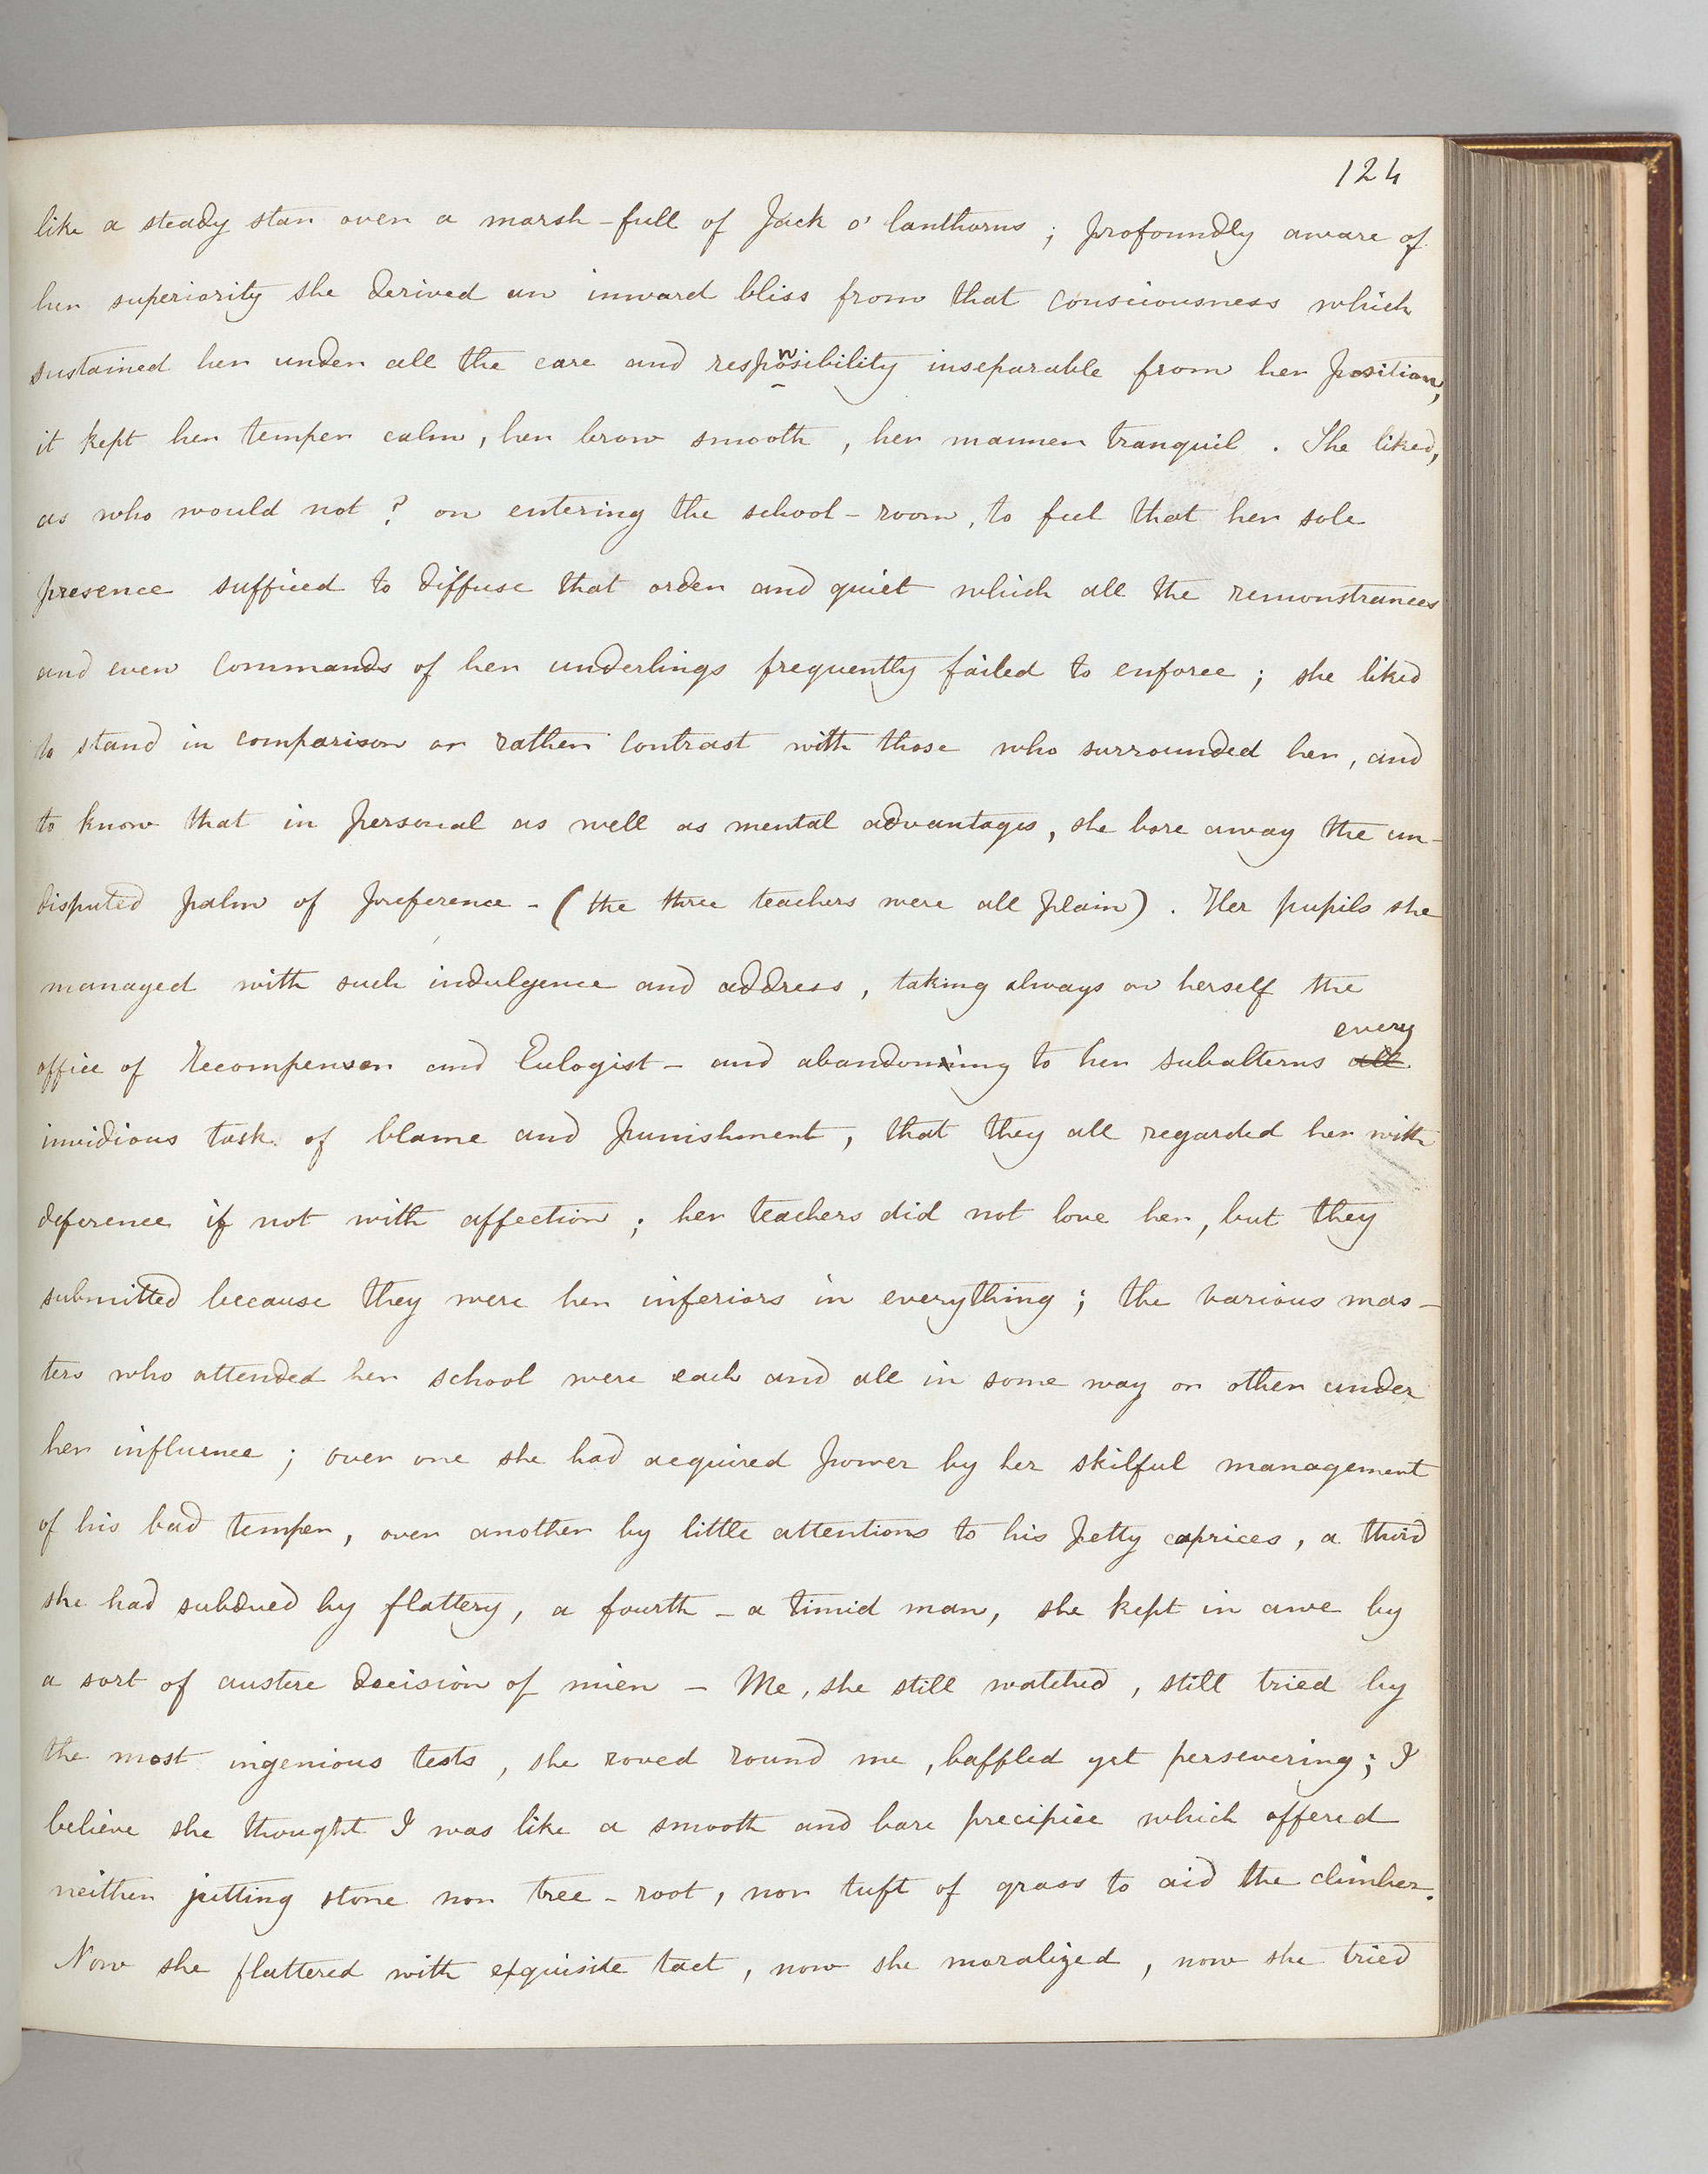 124
like a steady star over a marsh-full of Jack o' lanthorns ; profoundly aware of
her superiority she derived an inward bliss from that consciousness which
sustained her under all the care and responsibility inseparable from her position,
it kept her temper calm, her brow smooth , her manner tranquil . She liked,
as who would not ? on entering the school-room, to feel that her sole
presence sufficed to diffuse that order and quiet which all the remonstrances
and even commands of her underlings frequently failed to enforce ; she liked
to stand in comparison or rather contrast with those who surrounded her, and
to know that in personal as well as mental advantages, she bore away the un-
disputed palm of preference - (the three teachers were all plain) . Her pupils she
managed with such indulgence and address , taking always on herself the
every
office of Recompenser and Eulogist - and abandoning to her subalterns all
invidious task of blame and punishment , that they all regarded her with
deference if not with affection ; her teachers did not love her, but they
submitted because they were her inferiors in everything ; the various mas-
ters who attended her school were each and all in some way or other under
her influence ; over one she had acquired power by her skilful management
of his bad temper, over another by little attentions to his petty caprices, a third
she had subdued by flattery, a fourth - a timid man, she kept in awe by
a sort of austere decision of mien - Me, she still watched , still tried by
the most ingenious tests , she roved round me , baffled yet persevering; I
believe she thought I was like a smooth and bare precipice which offered
neither jutting stone nor tree-root, nor tuft of grass to aid the climber.
Now she flattered with exquisite tact , now she moralized , now she tried